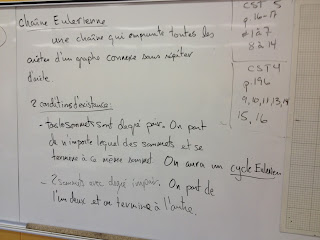 Chaîne Eulerienne
une chaîne qui emprunte toutes les
arêtes d'un graphe connexe sans répéter
d'arête.
2 conditions d'existence:
- tous les sommets sont degré pair. On part
de n'importe lequel des sommets et se
termine à ce même sommet. On aura un cycle Eulerien
- 2 sommets avec degré impair. On part de
l'un deux et on termine à l'autre.
CST 5
p 16-17
# 1 à 7
8 à 14
CST 4
p 196
9, 10, 11, 13, 14
15, 16